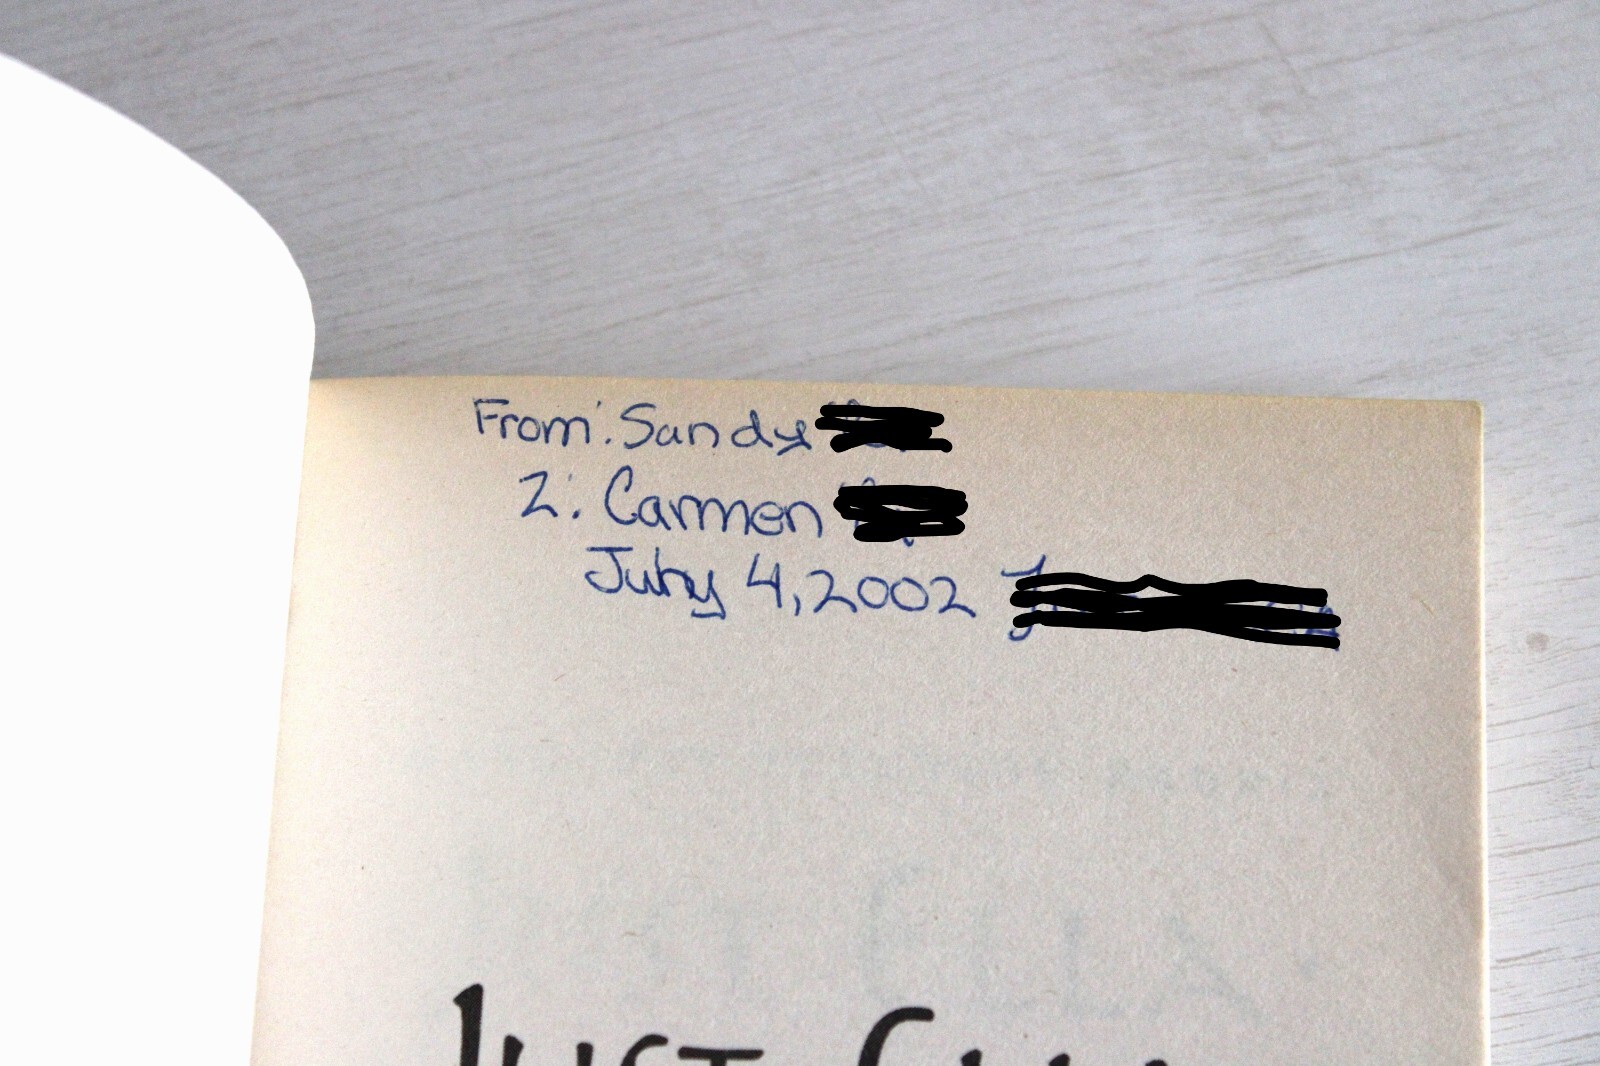 From: Sandy
2: Carmen
July 4, 2002
Just